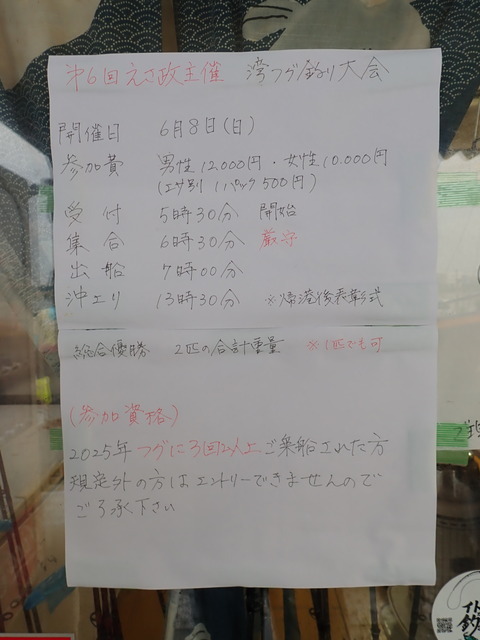 第6回えさ政主催 湾フグ釣り大会
開催日 6月8日(日)
参加費 男性12.000円・女性10.000円
(エサ別 1パック500円)
受付 5時30分 開始
集合 6時30分 厳守
出船 7時00分
沖上り 13時30分 ※帰港後表彰式
総合優勝 2匹の合計重量 ※1匹でも可
(参加資格)
2025年 フグに3回以上ご乗船された方
規定外の方はエントリーできませんので
ご了承下さい